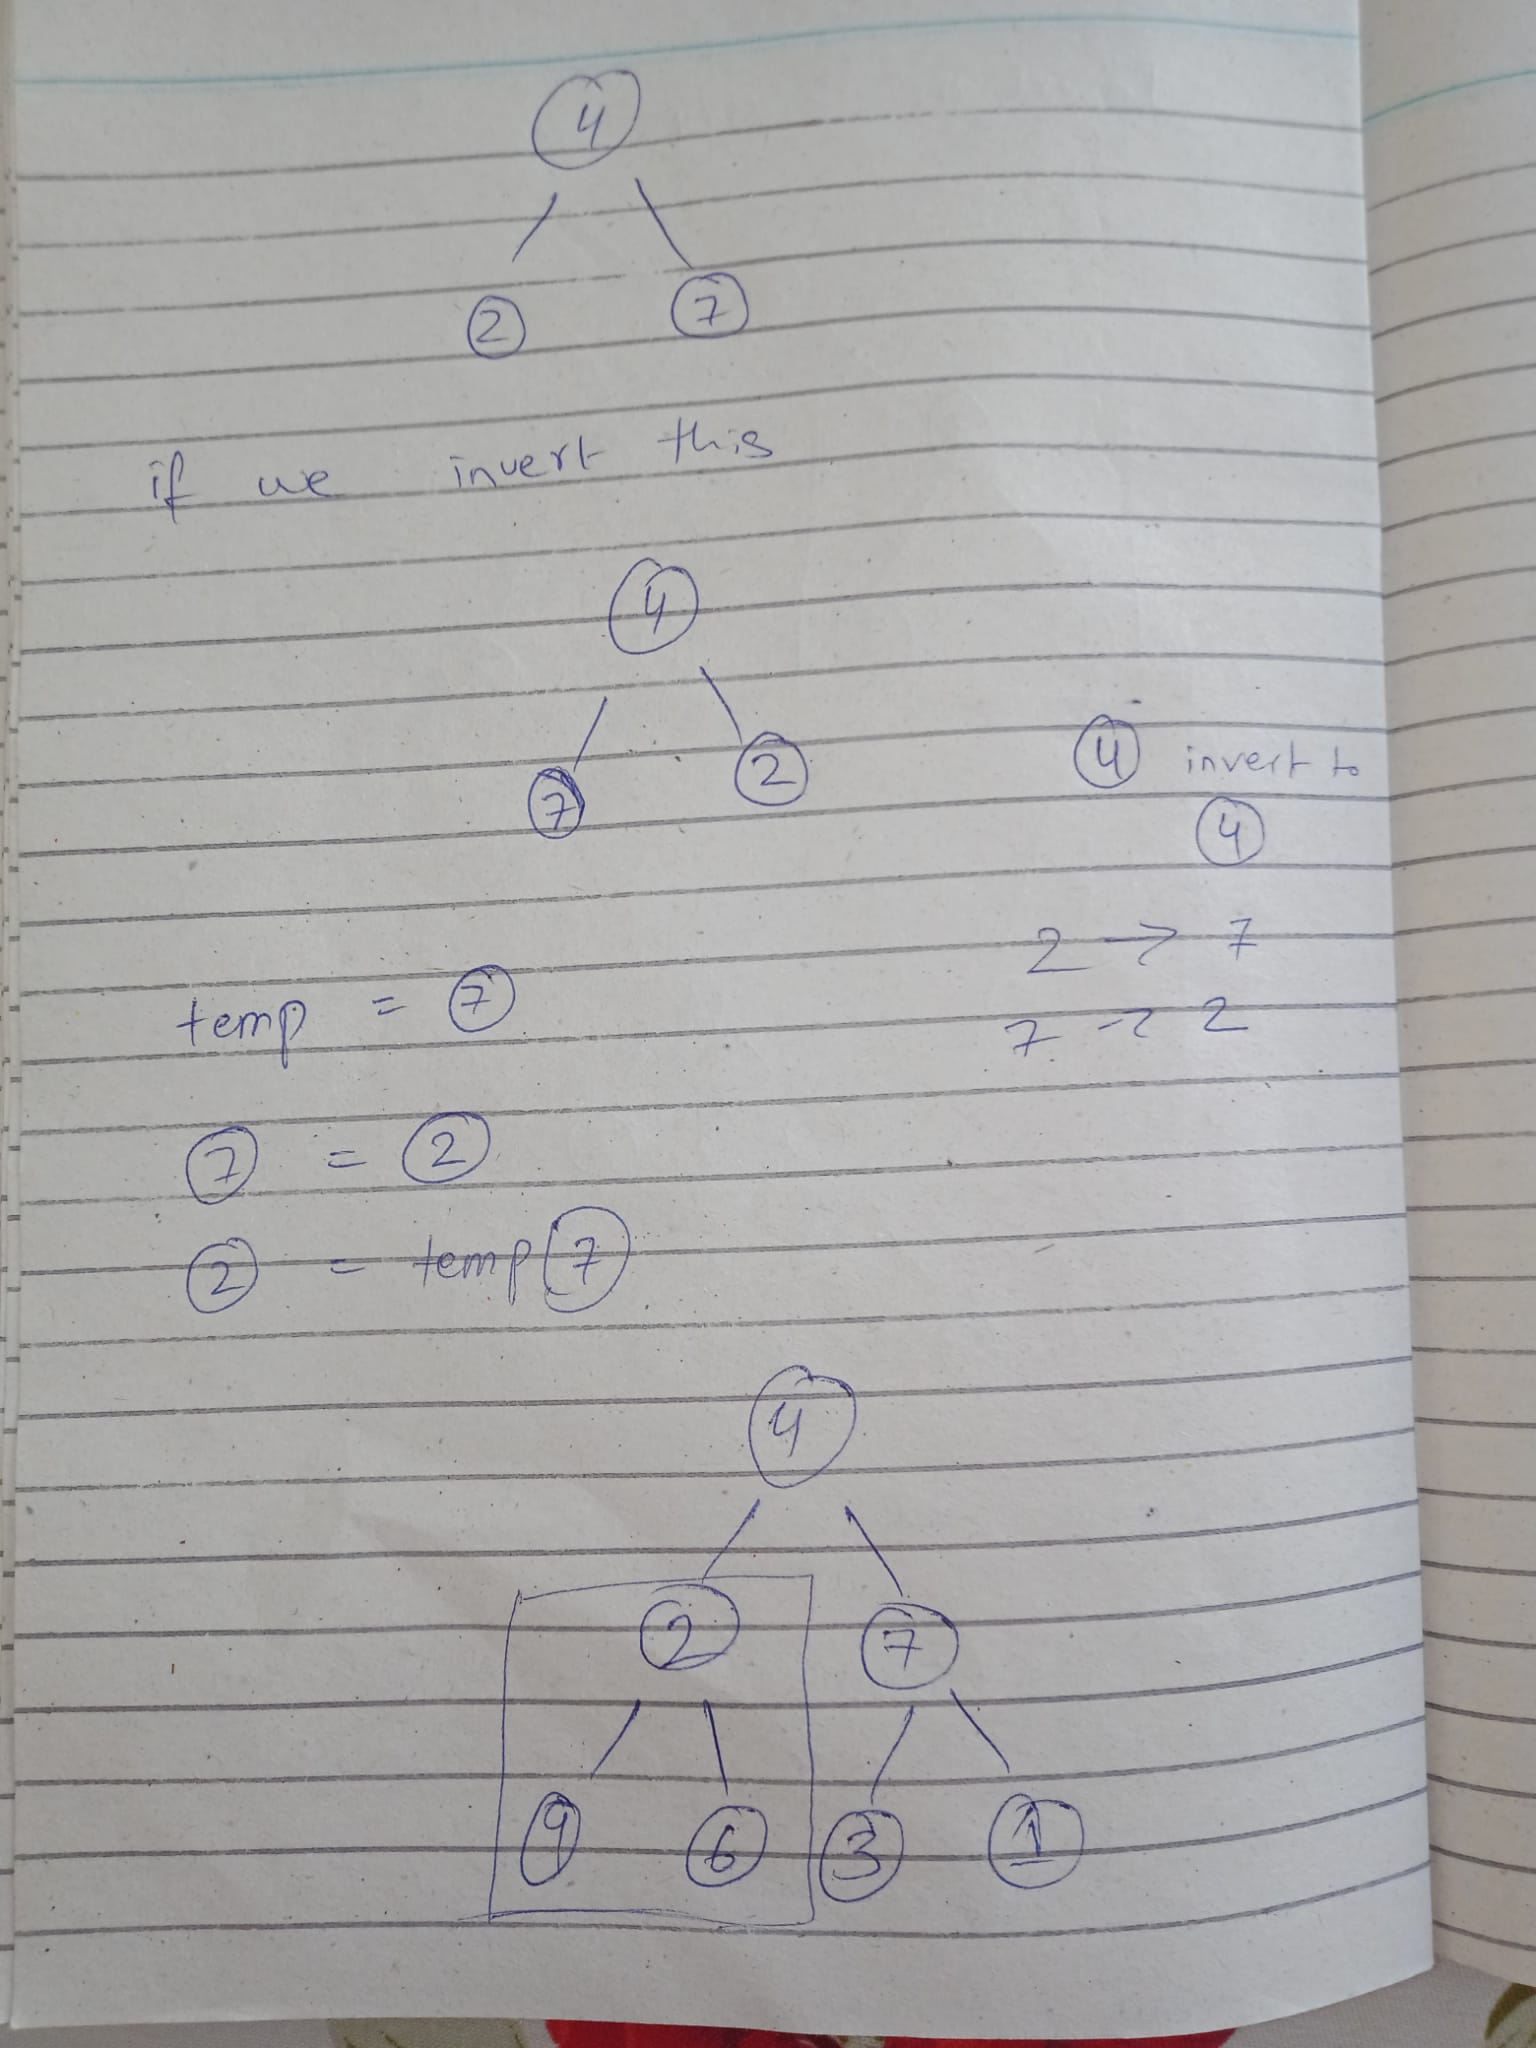 4
2 7
if we invert this
4
7 2
4 invert to
4
2 → 7
7 → 2
temp = 7
7 = 2
2 = temp(7)
4
2 7
9 6 3 1